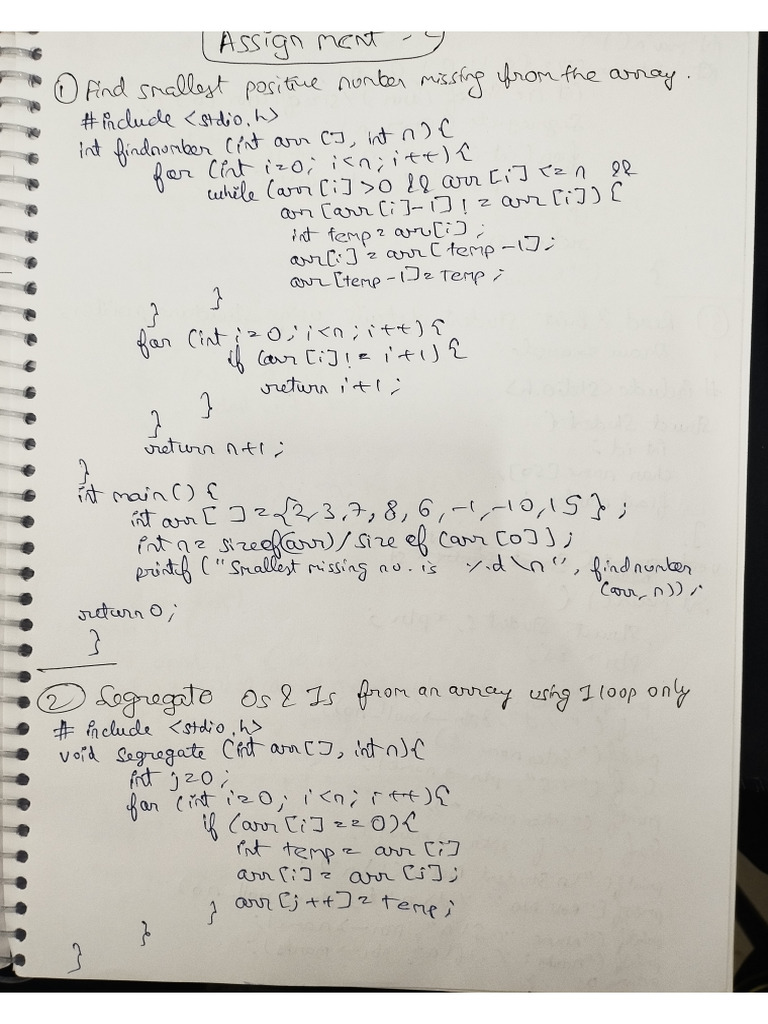 Assignment -
① Find smallest positive number missing from the array.
#include <stdio.h>
int findnumber (int arr [], int n) {
for (int i=0; i<n; i++) {
while (arr [i] >0 && arr [i] <= n &&
arr [arr [i]-1] != arr [i]) {
int temp = arr[i];
arr[i] = arr[temp-1];
arr [temp-1] = temp;
}
}
for (int i=0; i<n; i++) {
if (arr [i] != i+1) {
return i+1;
}
}
return n+1;
}
int main() {
int arr [ ] = {2,3,7,8,6,-1,-10,15};
int n = sizeof(arr)/size of (arr [0]);
printf ("Smallest missing no. is %d \n", findnumber
(arr, n));
return 0;
}
② Segregate 0s & 1s from an array using 1 loop only
# include <stdio.h>
void segregate (int arr[], int n) {
int j=0;
for (int i=0; i<n; i++) {
if (arr [i] == 0) {
int temp = arr [i]
arr [i] = arr [j];
arr [j++] = temp;
}
}
}